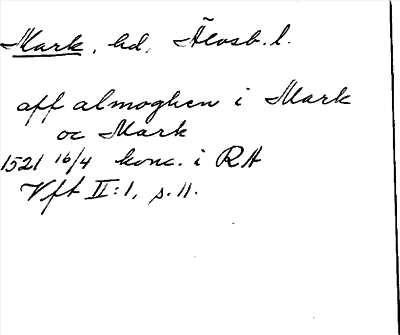 Mark, hd, Älvsb. l.
aff almoghen i Mark
oc Mark
1521 16/4 konc. i RA
Vft II:1, s. 11.